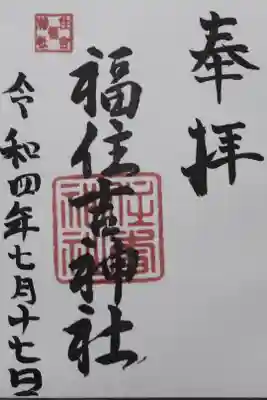 奉拝
福住吉神社
令和四年七月十七日
住吉神社